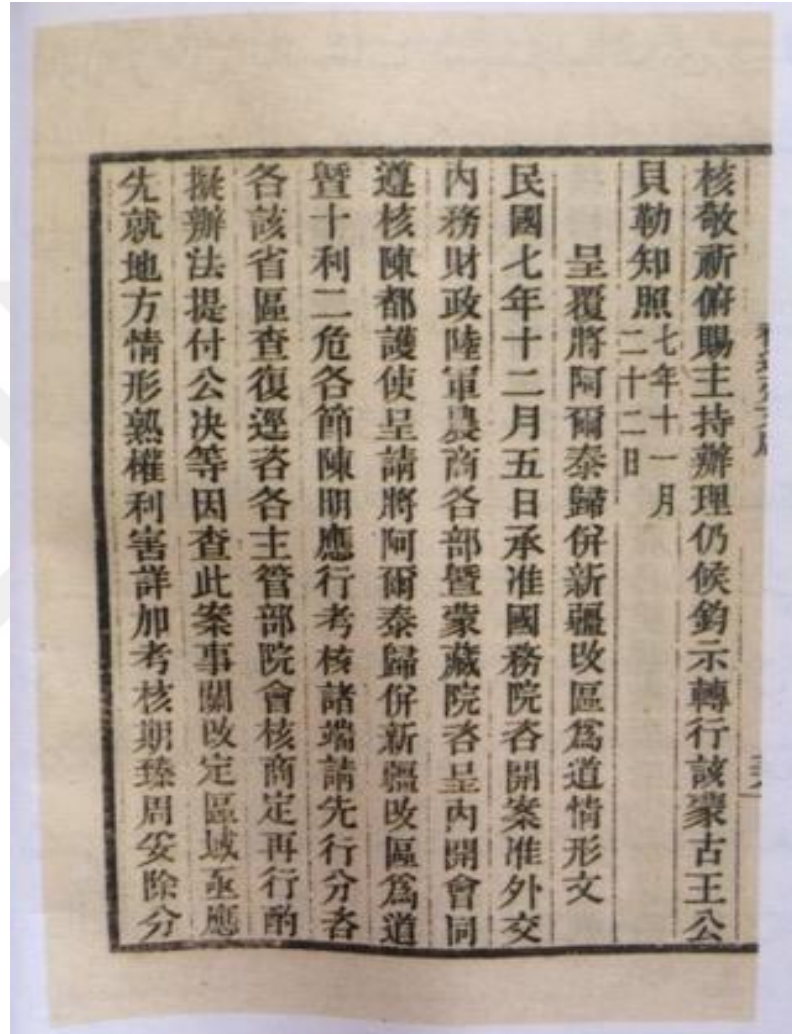 核敬祈俯賜主持辦理仍候鈞示轉行該蒙古王公
貝勒知照七年十一月二十二日
呈覆將阿爾泰歸併新疆改區爲道情形文
民國七年十二月五日承准國務院咨開案准外交
內務財政陸軍農商各部暨蒙藏院咨呈內開會同
遵核陳都護使呈請將阿爾泰歸併新疆改區爲道
暨十利二危各節陳明應行考核諸端請先行分咨
各該省區查復逕咨各主管部院會核商定再行酌
擬辦法提付公决等因查此案事關改定區域亟應
先就地方情形熟權利害詳加考核期臻周妥除分